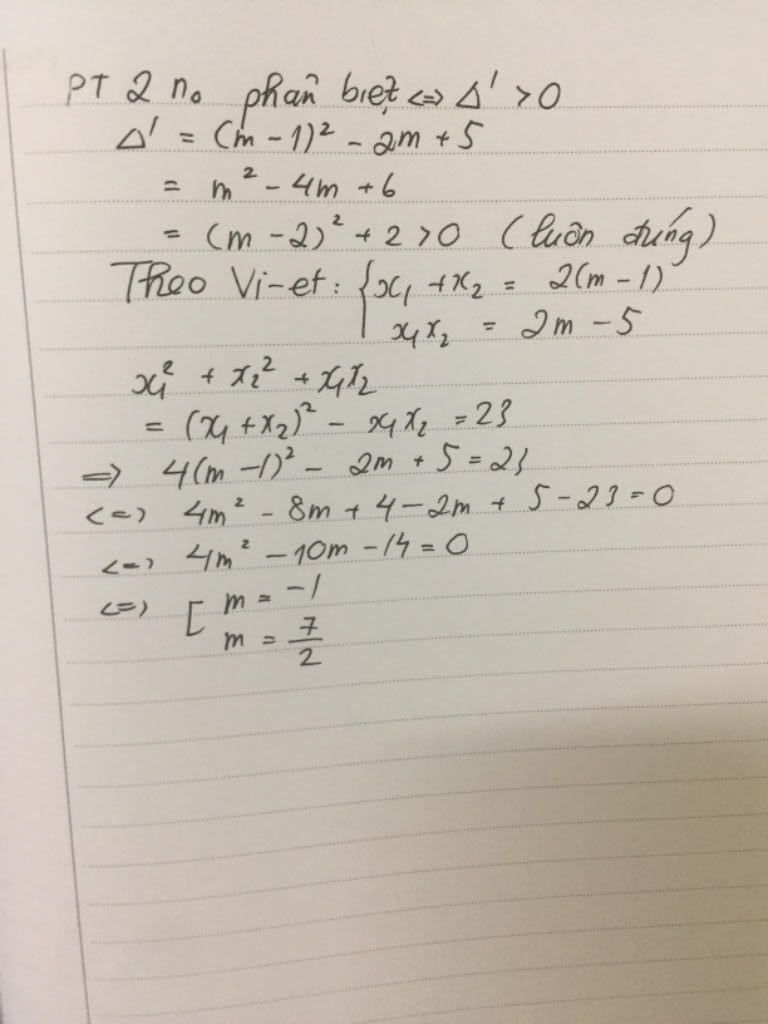 PT 2 no phân biệt <=> Δ' > 0
Δ' = (m - 1)² - 2m + 5
= m² - 4m + 6
= (m - 2)² + 2 > 0 (luôn đúng)
Theo Vi-et: { x₁ + x₂ = 2(m - 1)
x₁x₂ = 2m - 5
x₁² + x₂² + x₁x₂
= (x₁ + x₂)² - x₁x₂ = 23
=> 4(m - 1)² - 2m + 5 = 23
<=> 4m² - 8m + 4 - 2m + 5 - 23 = 0
<=> 4m² - 10m - 14 = 0
<=> [ m = -1
m = 7/2